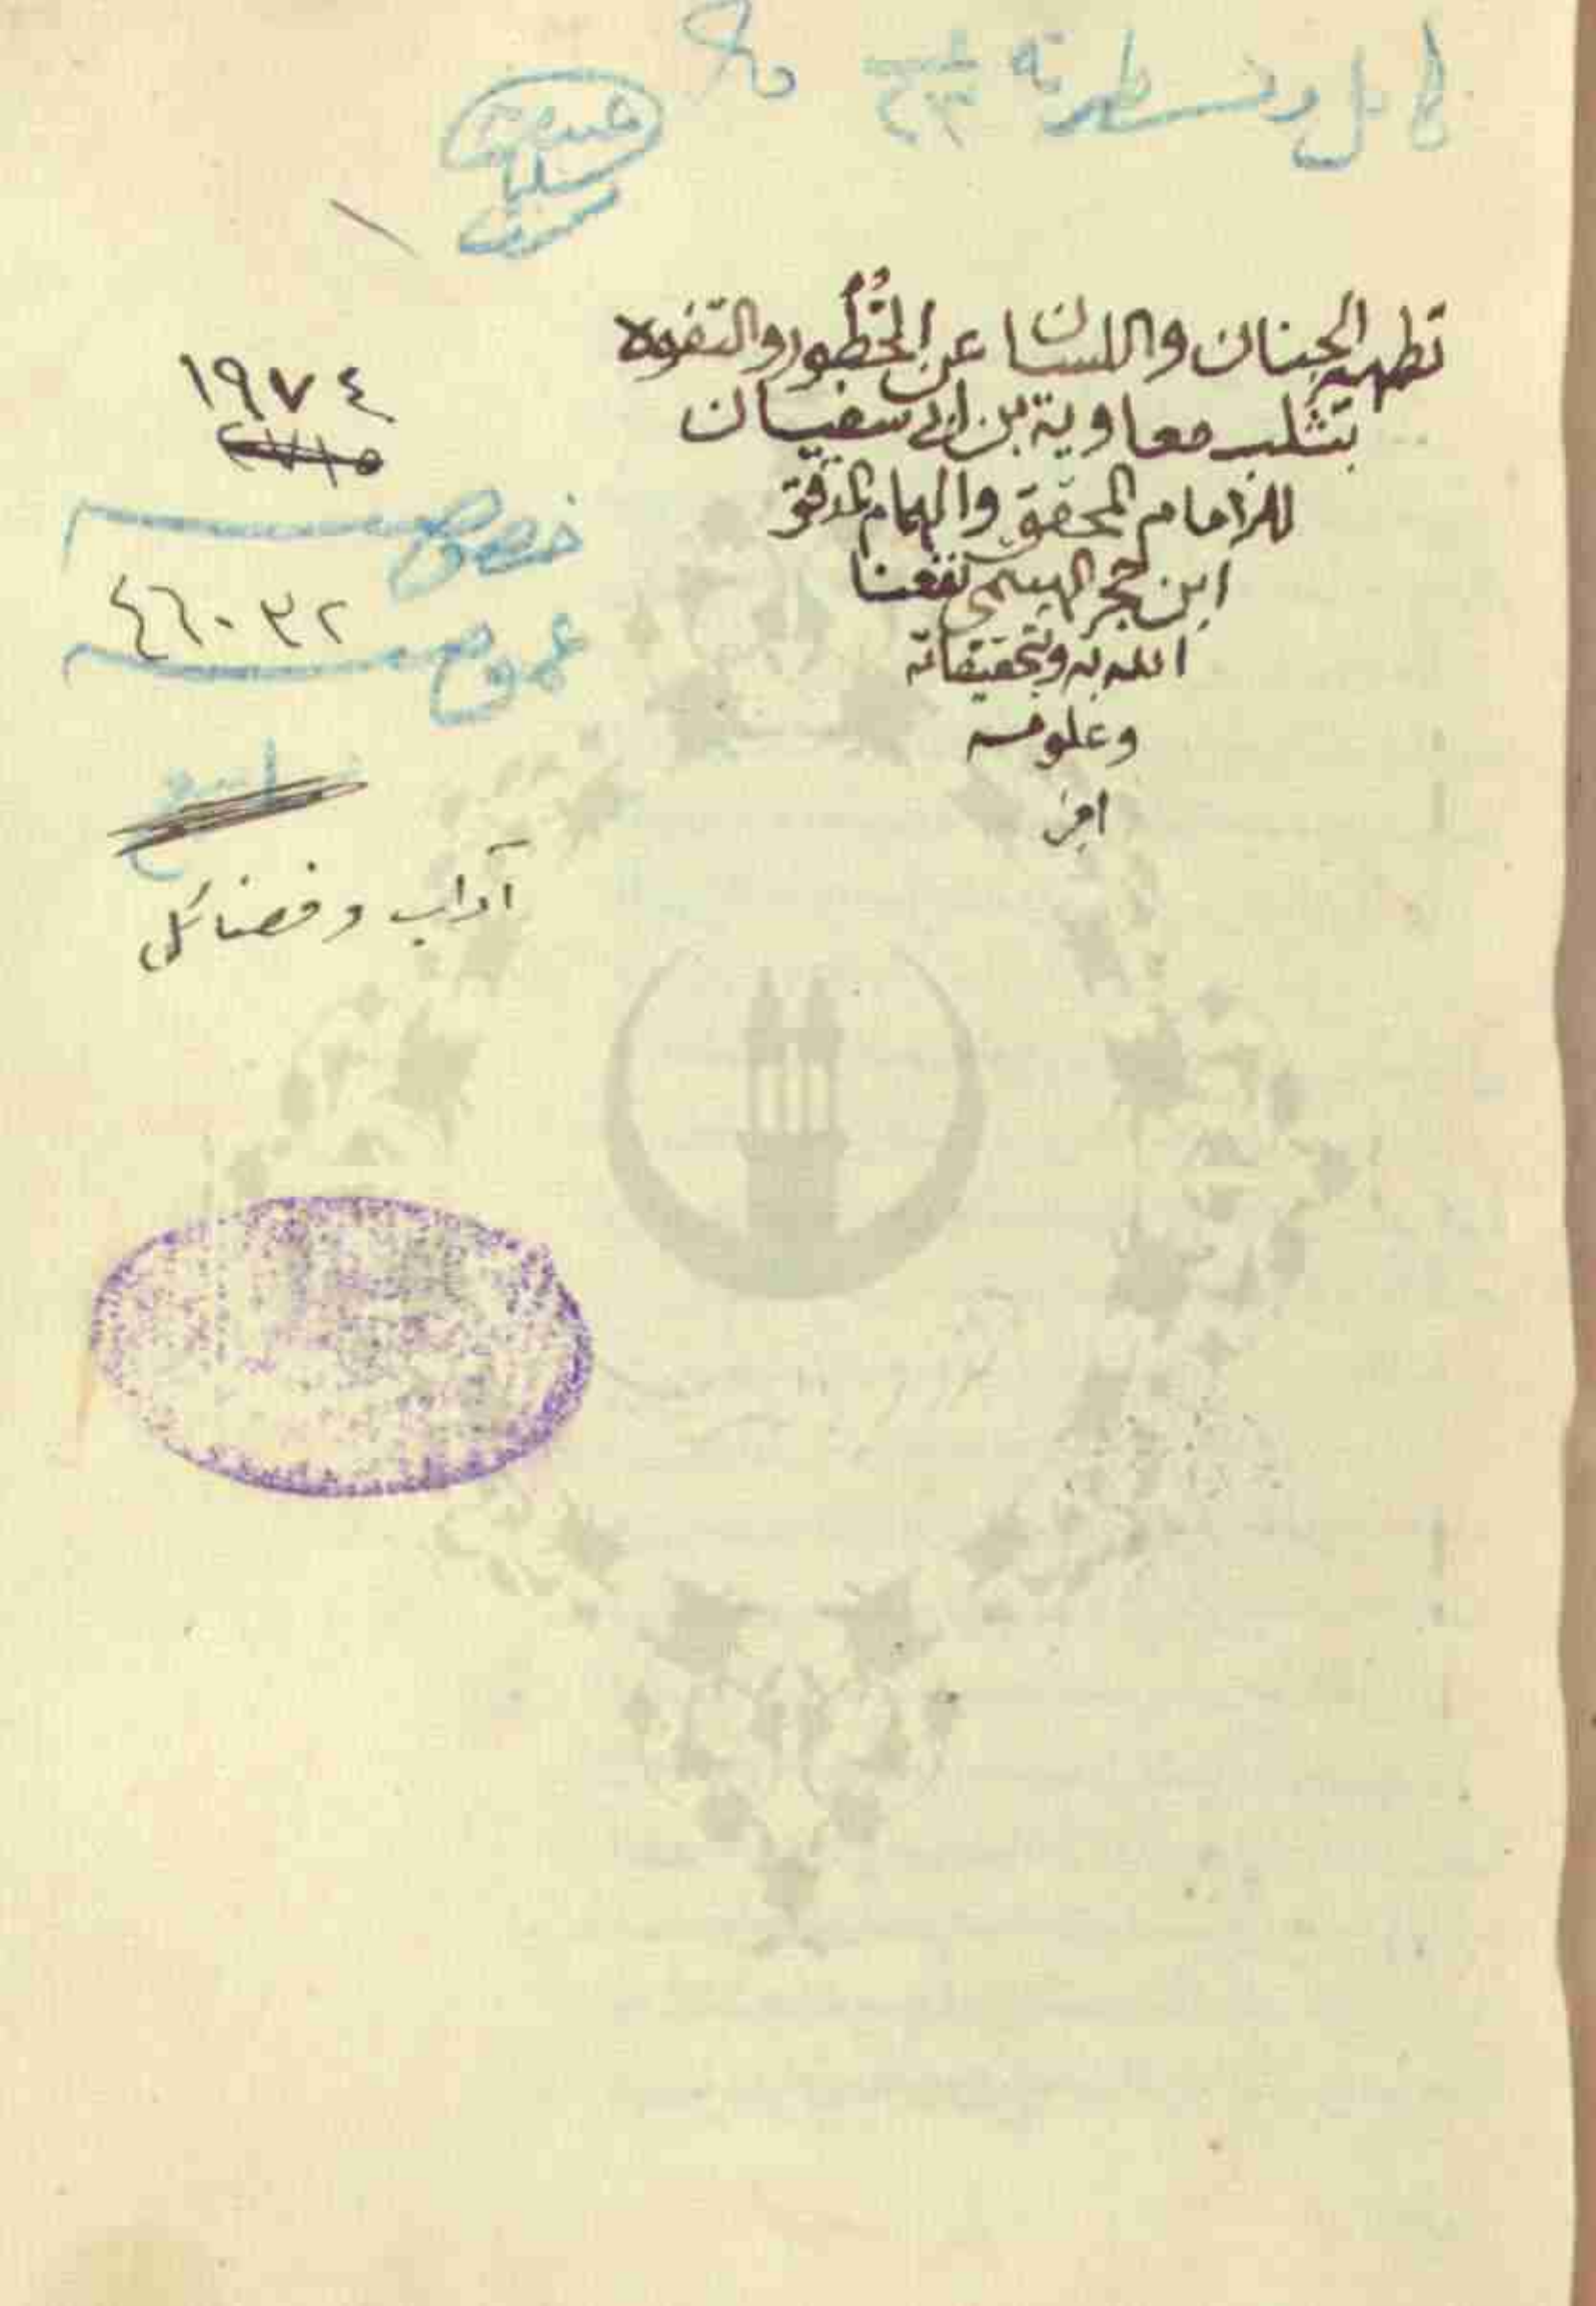 كامل ومسطرته
تطهير الجنان واللسان عن الخُطُور والتفوه
بثلب معاوية بن ابي سفيان
للامام المحقق والهمام المدقق
ابن حجر الهيتمي نفعنا
الله به وبتحقيقاته
وعلومه
امين
١٩٧٤
خصوص
٤٦٠٣٢
عموم
آداب وفضائل